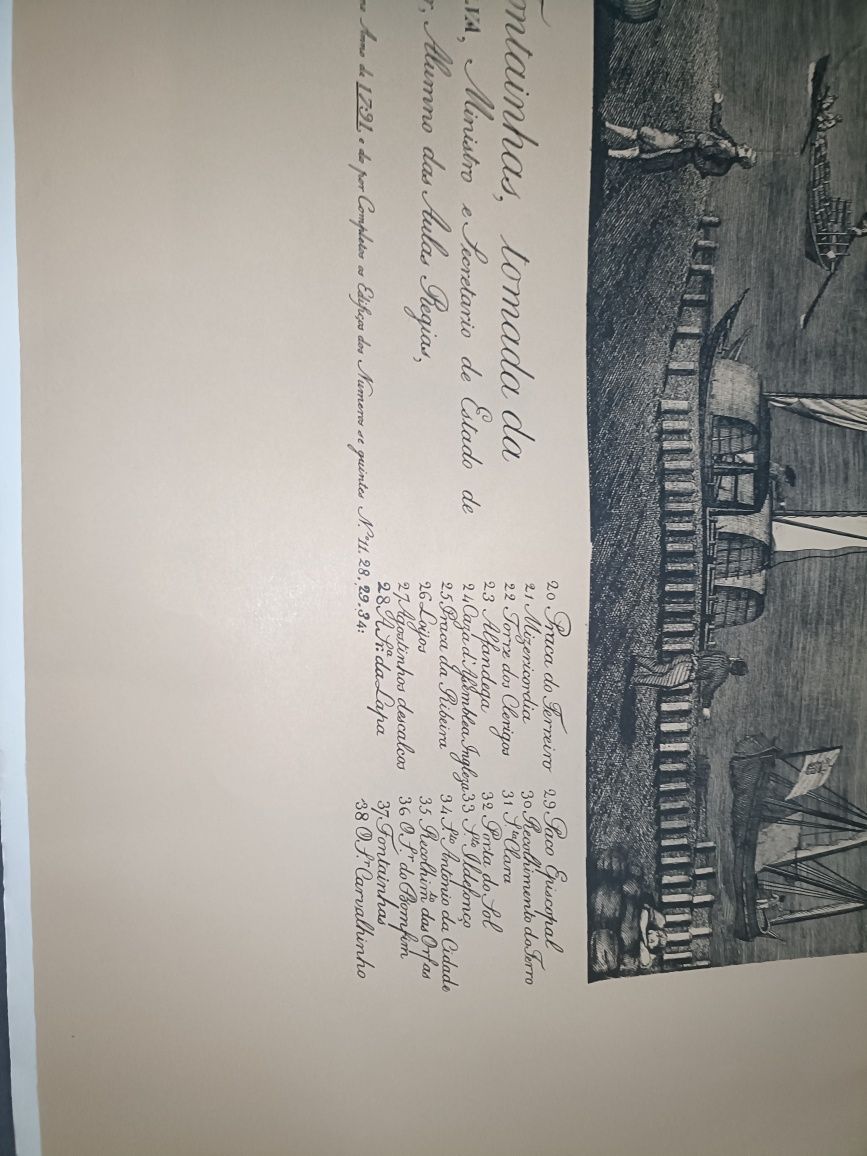 ontainhas, tomada da
Ministro e Secretario de Estado de
Alumno das Aulas Regias,
Anno de 1791. e do por Completos os Edifiços dos Numeros se guintes N.os 11. 28. 29. 34:
20 Praca do Terreiro
21 Mizericordia
22 Torre dos Clerigos
23 Alfandega
24 Caza d'Asemblea Ingleza
25 Praca da Ribeira
26 Loijos
27 Agostinhos descalcos
28 A Sª. da Lapa
29 Paco Episcopal
30 Recolhimento do Ferro
31 Sta Clara
32 Porta do Sol
33 Sto Ildefonço
34 S. Antonio da Cidade
35 Recolhimto das Orfas
36 O Sr. do Bomfim
37 Fontainhas
38 O Sr. Carvalhinho